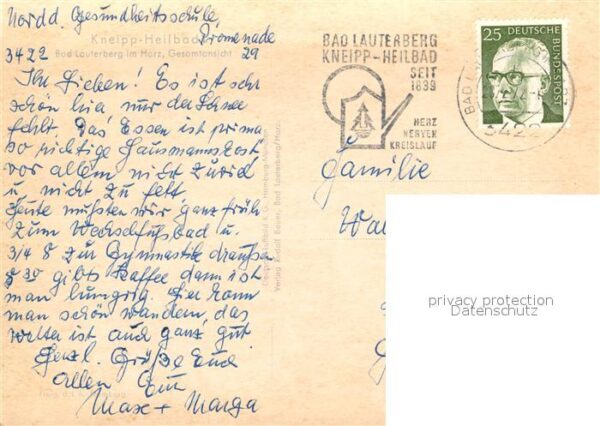 Nordd. Gesundheitsschule,
Promenade
3422 29
Kneipp-Heilbad
Bad Lauterberg im Harz, Gesamtansicht
Ihr Lieben! Es ist sehr
schön hier nur der Schnee
fehlt. Das Essen ist prima
so richtige Hausmannskost
vor allem nicht zuviel
u. nicht zu fett
Heute mußten wir ganz früh
zum Wechselfußbad u.
3/4 8 zur Gymnastik draußen
8 30 gibts Kaffee dann ist
man hungrig. Hier kann
man schön wandern, das
Wetter ist auch ganz gut
Herzl. Grüße Euch
allen Eure
Max + Marga
Verlag Rudolf Beyer, Bad Lauterberg/Harz
BAD LAUTERBERG
KNEIPP-HEILBAD
SEIT
1839
HERZ
NERVEN
KREISLAUF
25 DEUTSCHE
BUNDESPOST
BAD
3422
Familie
privacy protection
Datenschutz